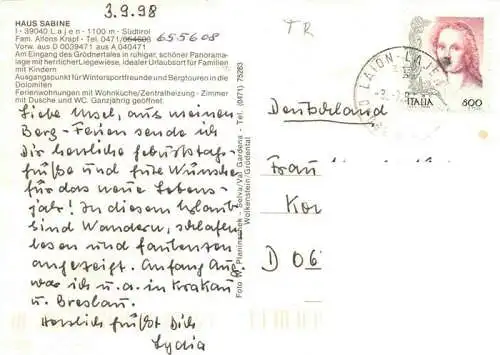 3.9.98
TR
HAUS SABINE
I - 39040 Lajen - 1100 m - Südtirol
Fam. Alfons Krapf - Tel. 0471/654608 655608
Vorw. aus D 0039471 aus A 040471
Am Eingang des Grödnertales in ruhiger, schöner Panorama-
lage mit herrlicher Liegewiese, idealer Urlaubsort für Familien
mit Kindern
Ausgangspunkt für Wintersportfreunde und Bergtouren in die
Dolomiten
Ferienwohnungen mit Wohnküche/Zentralheizung - Zimmer
mit Dusche und WC. Ganzjährig geöffnet.
Liebe Ursel, aus meinen
Berg-Ferien sende ich
Dir herzliche Geburtstags-
grüße und gute Wünsche
für das neue Lebens-
jahr! In diesem Urlaub
sind Wandern, schlafen
lesen und faulenzen
angezeigt. Anfang Aug.
war ich u.a. in Krakau
u. Breslau.
Herzlich grüßt Dich
Lydia
Foto W. Planinschek - Selva/Val Gardena - Tel. (0471) 75283
Wolkenstein/Grödental
LAION-LAJEN
ITALIA 800
Deutschland
Frau
Kor
D 06